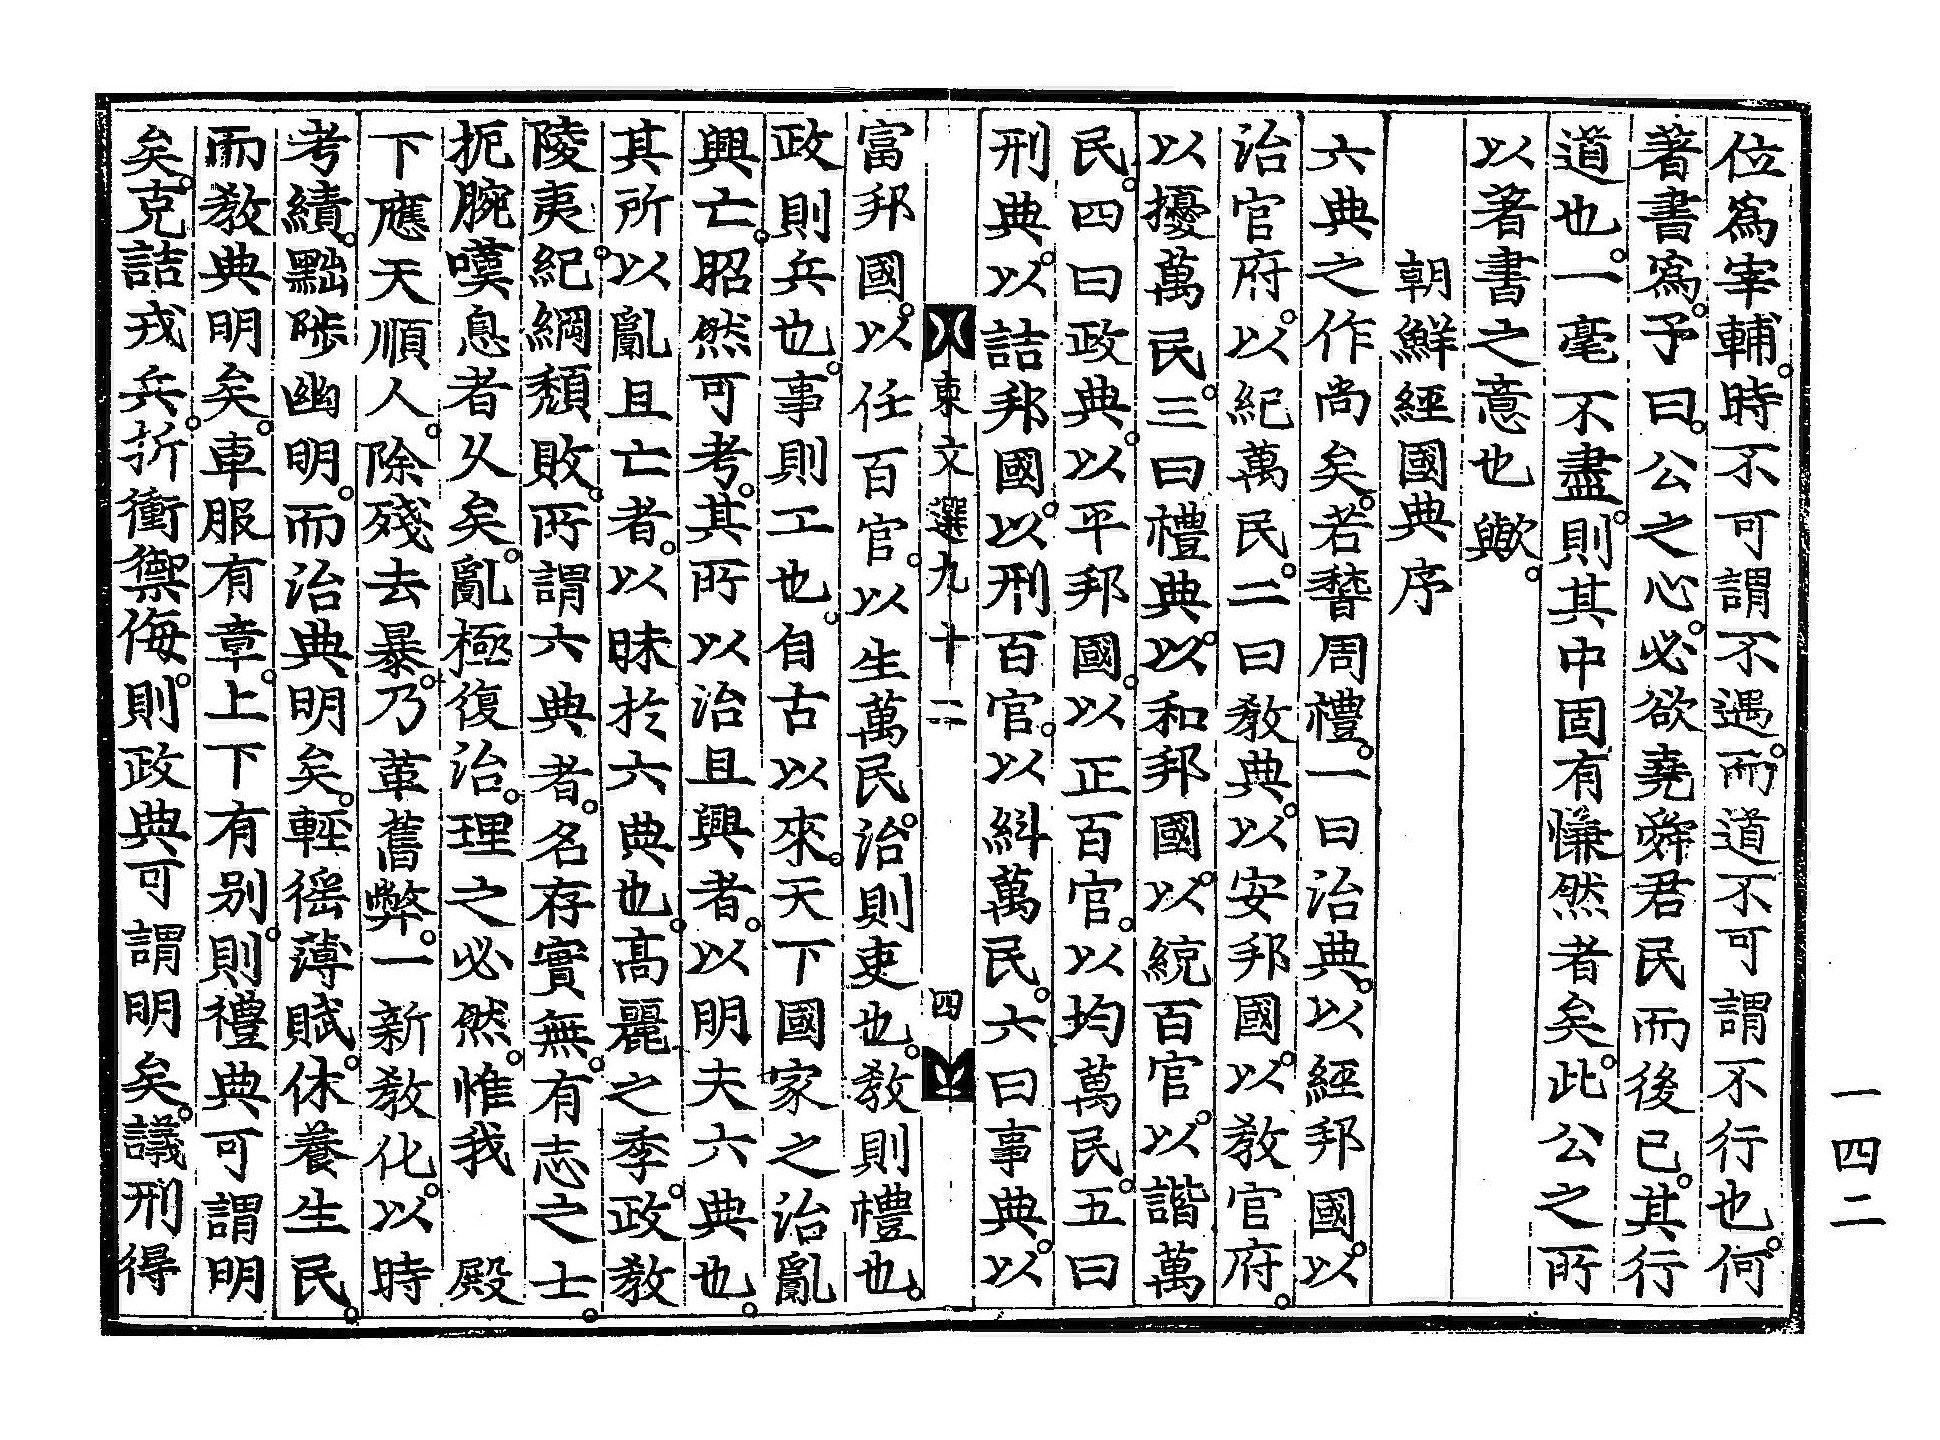 位爲宰輔。時不可謂不遇。而道不可謂不行也。何
著書爲。予曰。公之心。必欲堯舜君民而後已。其行
道也。一毫不盡。則其中固有慊然者矣。此公之所
以著書之意也歟。
朝鮮經國典序
六典之作尚矣。若稽周禮。一曰治典。以經邦國。以
治官府。以紀萬民。二曰敎典。以安邦國。以敎官府。
以擾萬民。三曰禮典。以和邦國。以統百官。以諧萬
民。四曰政典。以平邦國。以正百官。以均萬民。五曰
刑典。以詰邦國。以刑百官。以糾萬民。六曰事典。以
東文選九十二 四
富邦國。以任百官。以生萬民。治則吏也。敎則禮也。
政則兵也。事則工也。自古以來。天下國家之治亂
興亡。昭然可考。其所以治且興者。以明夫六典也。
其所以亂且亡者。以昧於六典也。高麗之季。政敎
陵夷。紀綱頹敗。所謂六典者。名存實無。有志之士。
扼腕嘆息者久矣。亂極復治。理之必然。惟我 殿
下應天順人。除殘去暴。乃革舊弊。一新敎化。以時
考績。黜陟幽明。而治典明矣。輕徭薄賦。休養生民。
而敎典明矣。車服有章。上下有別。則禮典可謂明
矣。克詰戎兵。折衝禦侮。則政典可謂明矣。議刑得
一四二